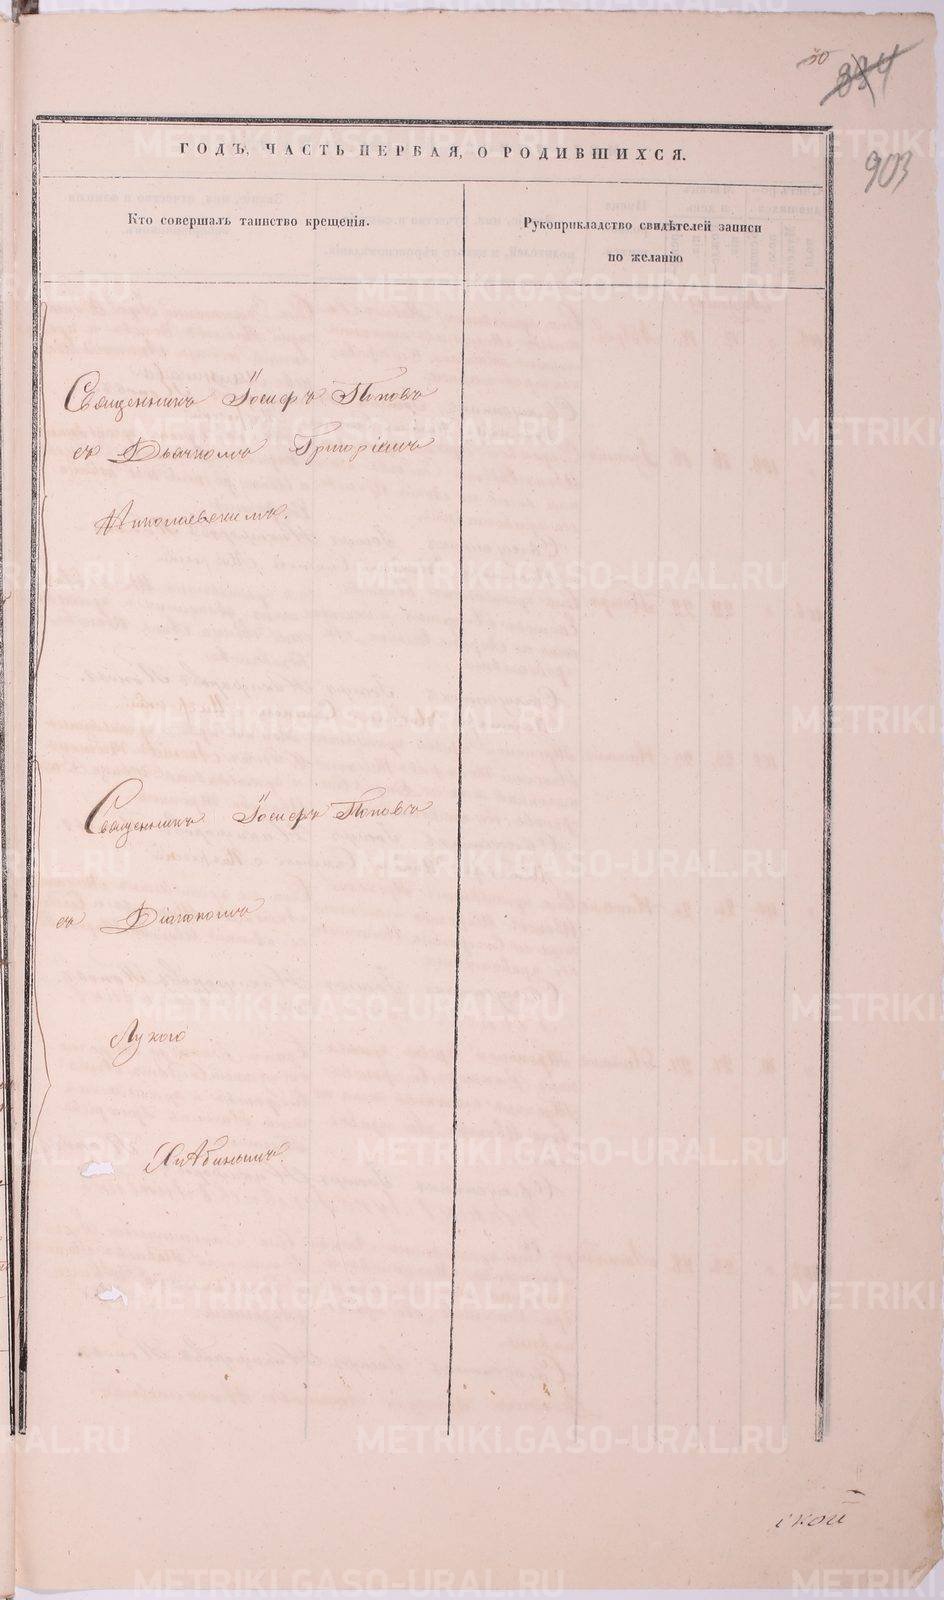 50
884
903
ГОДЪ, ЧАСТЬ ПЕРВАЯ, О РОДИВШИХСЯ.
Кто совершалъ таинство крещенія.
Рукоприкладство свидѣтелей записи
по желанію
Священникъ Іосифъ Поповъ
съ Дьячкомъ Григоріемъ
Николаевскимъ.
Священникъ Іосифъ Поповъ
съ Діакономъ
Лукою
Хлѣбинымъ.
METRIKI.GASO-URAL.RU